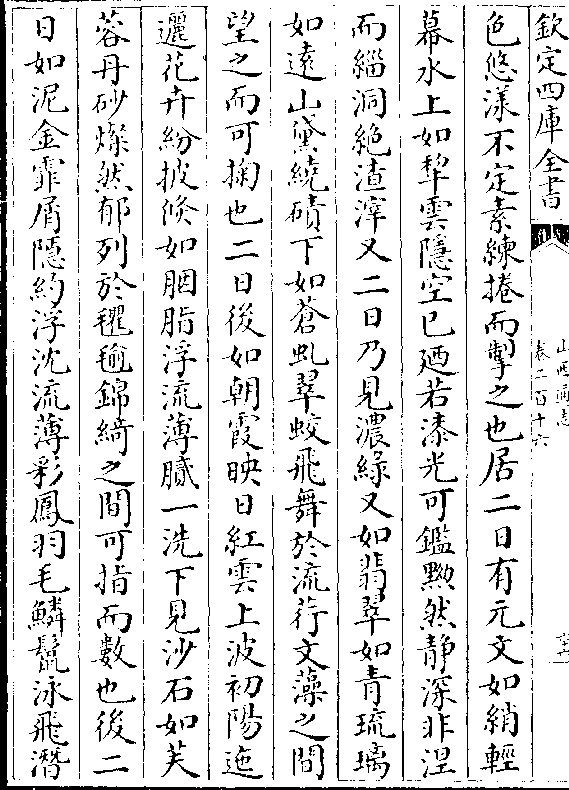 欽定四庫全書
山西通志
卷二百十六
色悠漾不定素練捲而掣之也居二日有元文如綃輕
幕水上如犂雲隱空已廼若漆光可鑑黝然靜深非涅
而緇洞絶渣滓又二日乃見濃緑又如翡翠如青琉璃
如遠山黛繞磧下如蒼虬翠蛟飛舞於流荇文藻之間
望之而可掬也二日後如朝霞映日紅雲上波初陽迤
邐花卉紛披倐如胭脂浮流薄膩一洗下見沙石如芙
蓉丹砂燦然郁列於氍毹錦綺之間可指而數也後二
日如泥金霏屑隱約浮沈流薄彩鳳羽毛鱗鬛泳飛潛